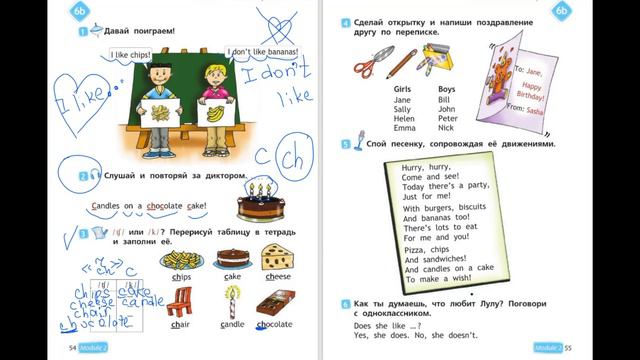 6b
1 Давай поиграем!
I like chips!
I don't like bananas!
I like...
I don't
like
c ch
2 Слушай и повторяй за диктором.
Candles on a chocolate cake!
3 /tʃ/ или /k/? Перерисуй таблицу в тетрадь
и заполни её.
«ч»
ch c
/tʃ/ /k/
chips cake
cheese candle
chair
chocolate
chips cake cheese
chair candle chocolate
54 Module 2
6b
4 Сделай открытку и напиши поздравление
другу по переписке.
Girls Boys
Jane Bill
Sally John
Helen Peter
Emma Nick
To: Jane,
Happy
Birthday!
From: Sasha
5 Спой песенку, сопровождая её движениями.
Hurry, hurry,
Come and see!
Today there's a party,
Just for me!
With burgers, biscuits
And bananas too!
There's lots to eat
For me and you!
Pizza, chips
And sandwiches!
And candles on a cake
To make a wish!
6 Как ты думаешь, что любит Лулу? Поговори
с одноклассником.
Does she like ...?
Yes, she does. No, she doesn't.
Module 2 55